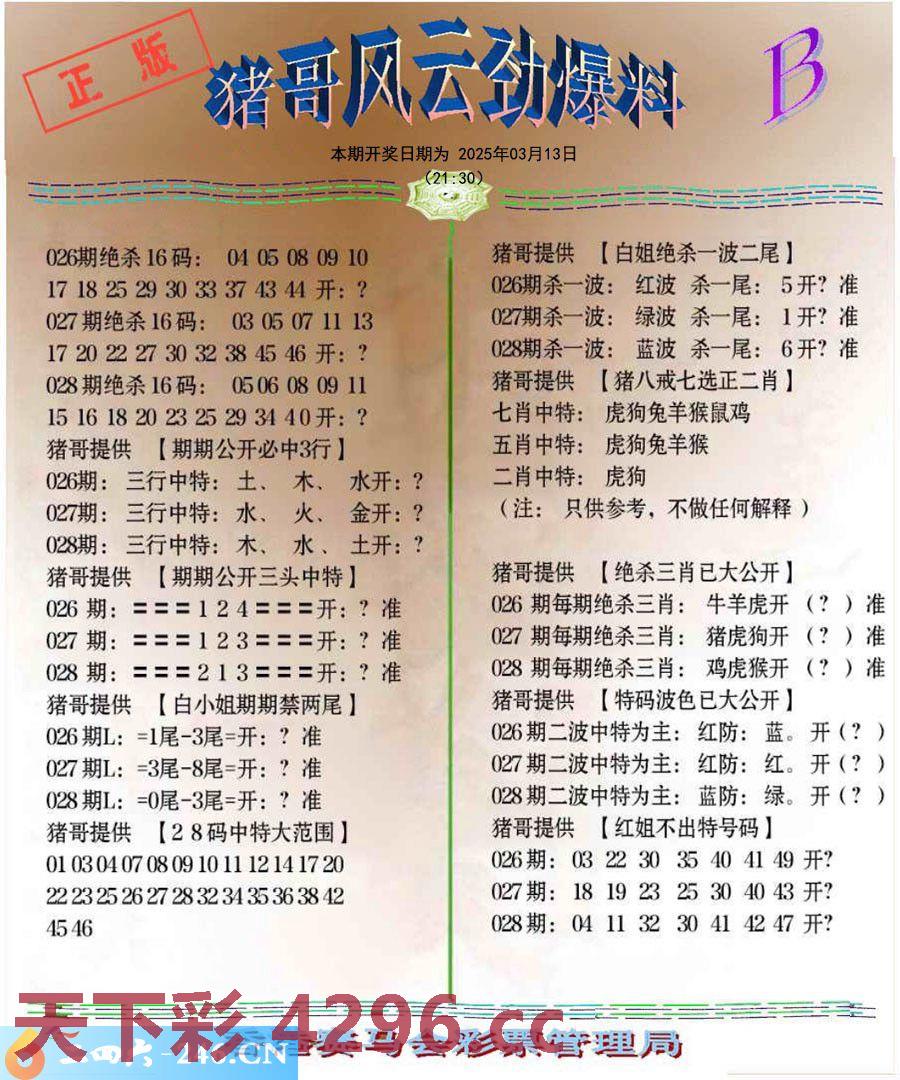 正版
猪哥风云劲爆料
B
本期开奖日期为 2025年03月13日
(21:30)
026期绝杀16码: 04 05 08 09 10
17 18 25 29 30 33 37 43 44 开: ?
027期绝杀16码: 03 05 07 11 13
17 20 22 27 30 32 38 45 46 开: ?
028期绝杀16码: 05 06 08 09 11
15 16 18 20 23 25 29 34 40 开: ?
猪哥提供 【期期公开必中3行】
026期: 三行中特: 土、 木、 水开: ?
027期: 三行中特: 水、 火、 金开: ?
028期: 三行中特: 木、 水、 土开: ?
猪哥提供 【期期公开三头中特】
026 期: === 1 2 4 === 开: ? 准
027 期: === 1 2 3 === 开: ? 准
028 期: === 2 1 3 === 开: ? 准
猪哥提供 【白小姐期期禁两尾】
026期L: =1尾-3尾=开: ? 准
027期L: =3尾-8尾=开: ? 准
028期L: =0尾-3尾=开: ? 准
猪哥提供 【28码中特大范围】
01 03 04 07 08 09 10 11 12 14 17 20
22 23 25 26 27 28 32 34 35 36 38 42
45 46
猪哥提供 【白姐绝杀一波二尾】
026期杀一波: 红波 杀一尾: 5开? 准
027期杀一波: 绿波 杀一尾: 1开? 准
028期杀一波: 蓝波 杀一尾: 6开? 准
猪哥提供 【猪八戒七选正二肖】
七肖中特: 虎狗兔羊猴鼠鸡
五肖中特: 虎狗兔羊猴
二肖中特: 虎狗
(注: 只供参考, 不做任何解释)
猪哥提供 【绝杀三肖已大公开】
026 期每期绝杀三肖: 牛羊虎开 (?) 准
027 期每期绝杀三肖: 猪虎狗开 (?) 准
028 期每期绝杀三肖: 鸡虎猴开 (?) 准
猪哥提供 【特码波色已大公开】
026期二波中特为主: 红防: 蓝。开(?)
027期二波中特为主: 红防: 红。开(?)
028期二波中特为主: 蓝防: 绿。开(?)
猪哥提供 【红姐不出特号码】
026期: 03 22 30 35 40 41 49 开?
027期: 18 19 23 25 30 40 43 开?
028期: 04 11 32 30 41 42 47 开?
天下彩 4296.cc
二四六-246.CN
马会彩票管理局